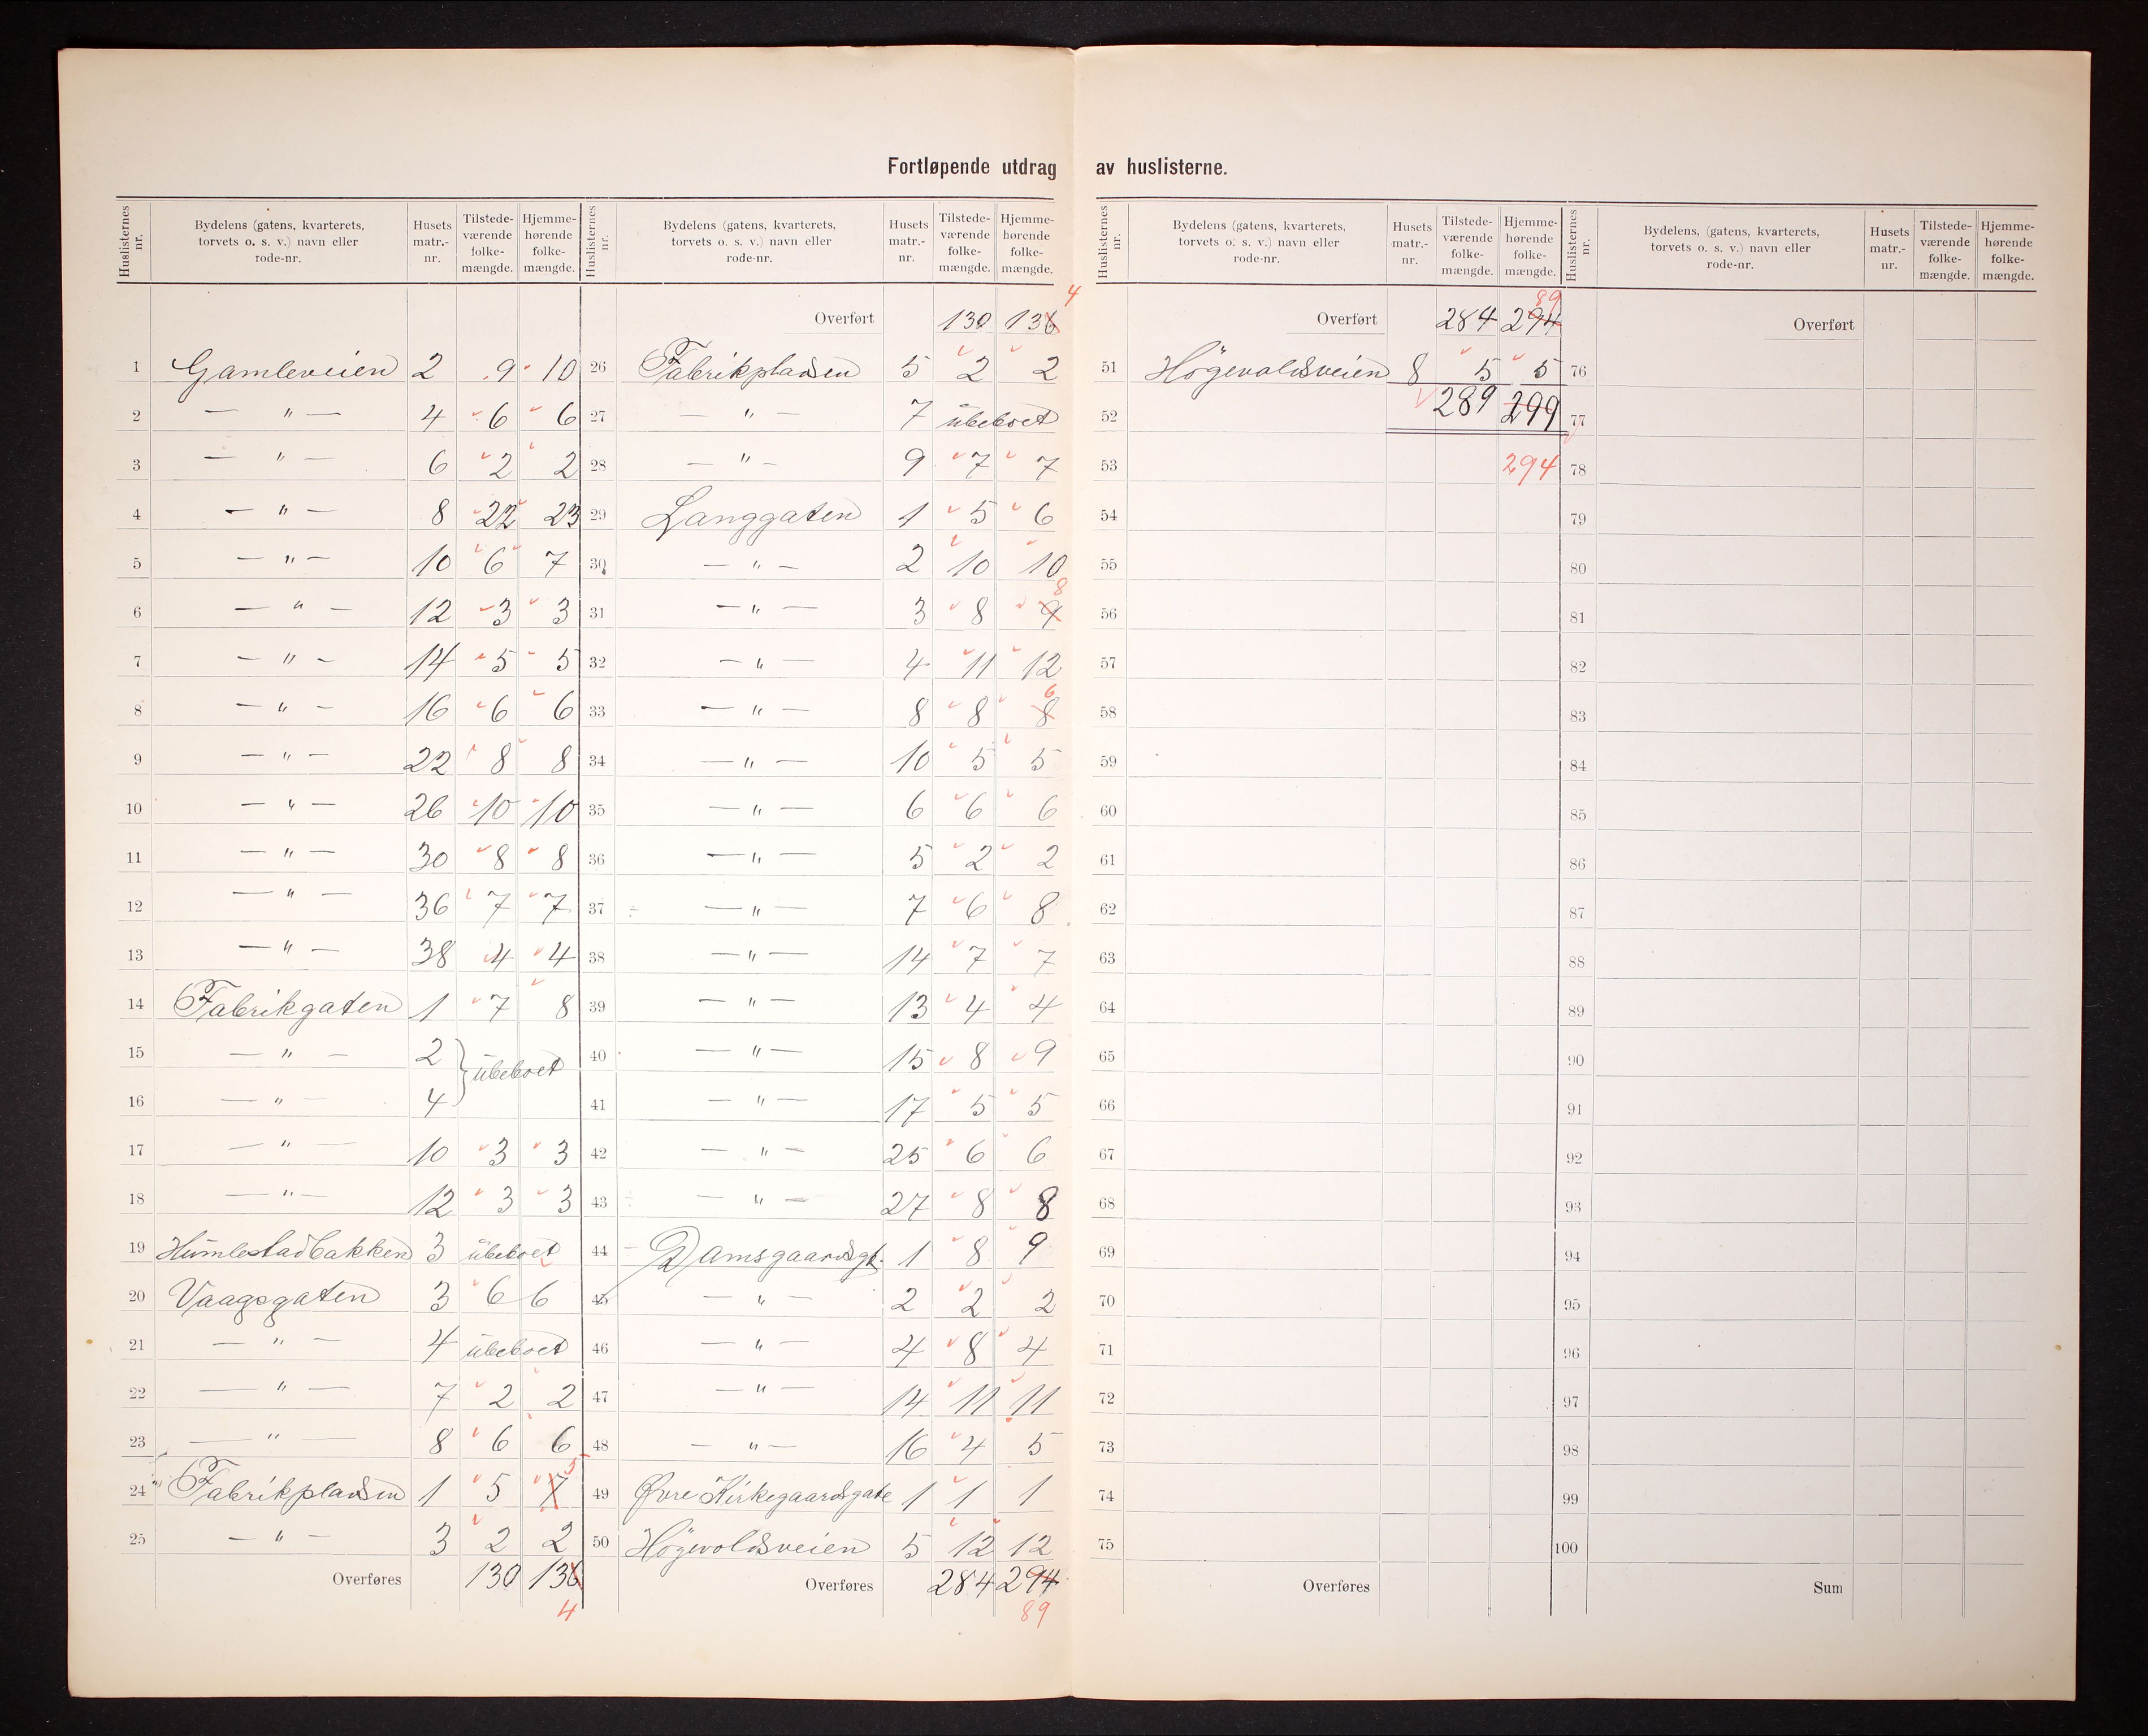 Fortløpende utdrag av huslisterne.
Huslisternes nr. | Bydelens (gatens, kvarterets, torvets o. s. v.) navn eller rode-nr. | Husets matr.-nr. | Tilstede-værende folke-mængde. | Hjemme-hørende folke-mængde.
1 Gamleveien 2 9 10
2 — " — 4 6 6
3 — " — 6 2 2
4 — " — 8 22 23
5 — " — 10 6 7
6 — " — 12 3 3
7 — " — 14 5 5
8 — " — 16 6 6
9 — " — 22 8 8
10 — " — 26 10 10
11 — " — 30 8 8
12 — " — 36 7 7
13 — " — 38 4 4
14 Fabrikgaten 1 7 8
15 — " — 2 } ubeboet
16 — " — 4
17 — " — 10 3 3
18 — " — 12 3 3
19 Humlestadbakken 3 ubeboet
20 Vaagsgaten 3 6 6
21 — " — 4 ubeboet
22 — " — 7 2 2
23 — " — 8 6 6
24 Fabrikpladsen 1 5 7 5
25 — " — 3 2 2
Overføres 130 136
4
Huslisternes nr. | Bydelens (gatens, kvarterets, torvets o. s. v.) navn eller rode-nr. | Husets matr.-nr. | Tilstede-værende folke-mængde. | Hjemme-hørende folke-mængde.
Overført 130 136 4
26 Fabrikpladsen 5 2 2
27 — " — 7 ubeboet
28 — " — 9 7 7
29 Langgaten 1 5 6
30 — " — 2 10 10
31 — " — 3 8 9 8
32 — " — 4 11 12
33 — " — 8 8 8 6
34 — " — 10 5 5
35 — " — 6 6 6
36 — " — 5 2 2
37 — " — 7 6 8
38 — " — 14 7 7
39 — " — 13 4 4
40 — " — 15 8 9
41 — " — 17 5 5
42 — " — 25 6 6
43 — " — 27 8 8
44 Damsgaardsgt. 1 8 9
45 — " — 2 2 2
46 — " — 4 8 4
47 — " — 14 11 11
48 — " — 16 4 5
49 Øvre Kirkegaardsgate 1 1 1
50 Högevoldsveien 5 12 12
Overføres 284 294
89
Huslisternes nr. | Bydelens (gatens, kvarterets, torvets o. s. v.) navn eller rode-nr. | Husets matr.-nr. | Tilstede-værende folke-mængde. | Hjemme-hørende folke-mængde.
89
Overført 284 294
51 Högevoldsveien 8 5 5
52 289 299
53 294
54
55
56
57
58
59
60
61
62
63
64
65
66
67
68
69
70
71
72
73
74
75
Overføres
Huslisternes nr. | Bydelens, (gatens, kvarterets, torvets o. s. v.) navn eller rode-nr. | Husets matr.-nr. | Tilstede-værende folke-mængde. | Hjemme-hørende folke-mængde.
Overført
76
77
78
79
80
81
82
83
84
85
86
87
88
89
90
91
92
93
94
95
96
97
98
99
100
Sum